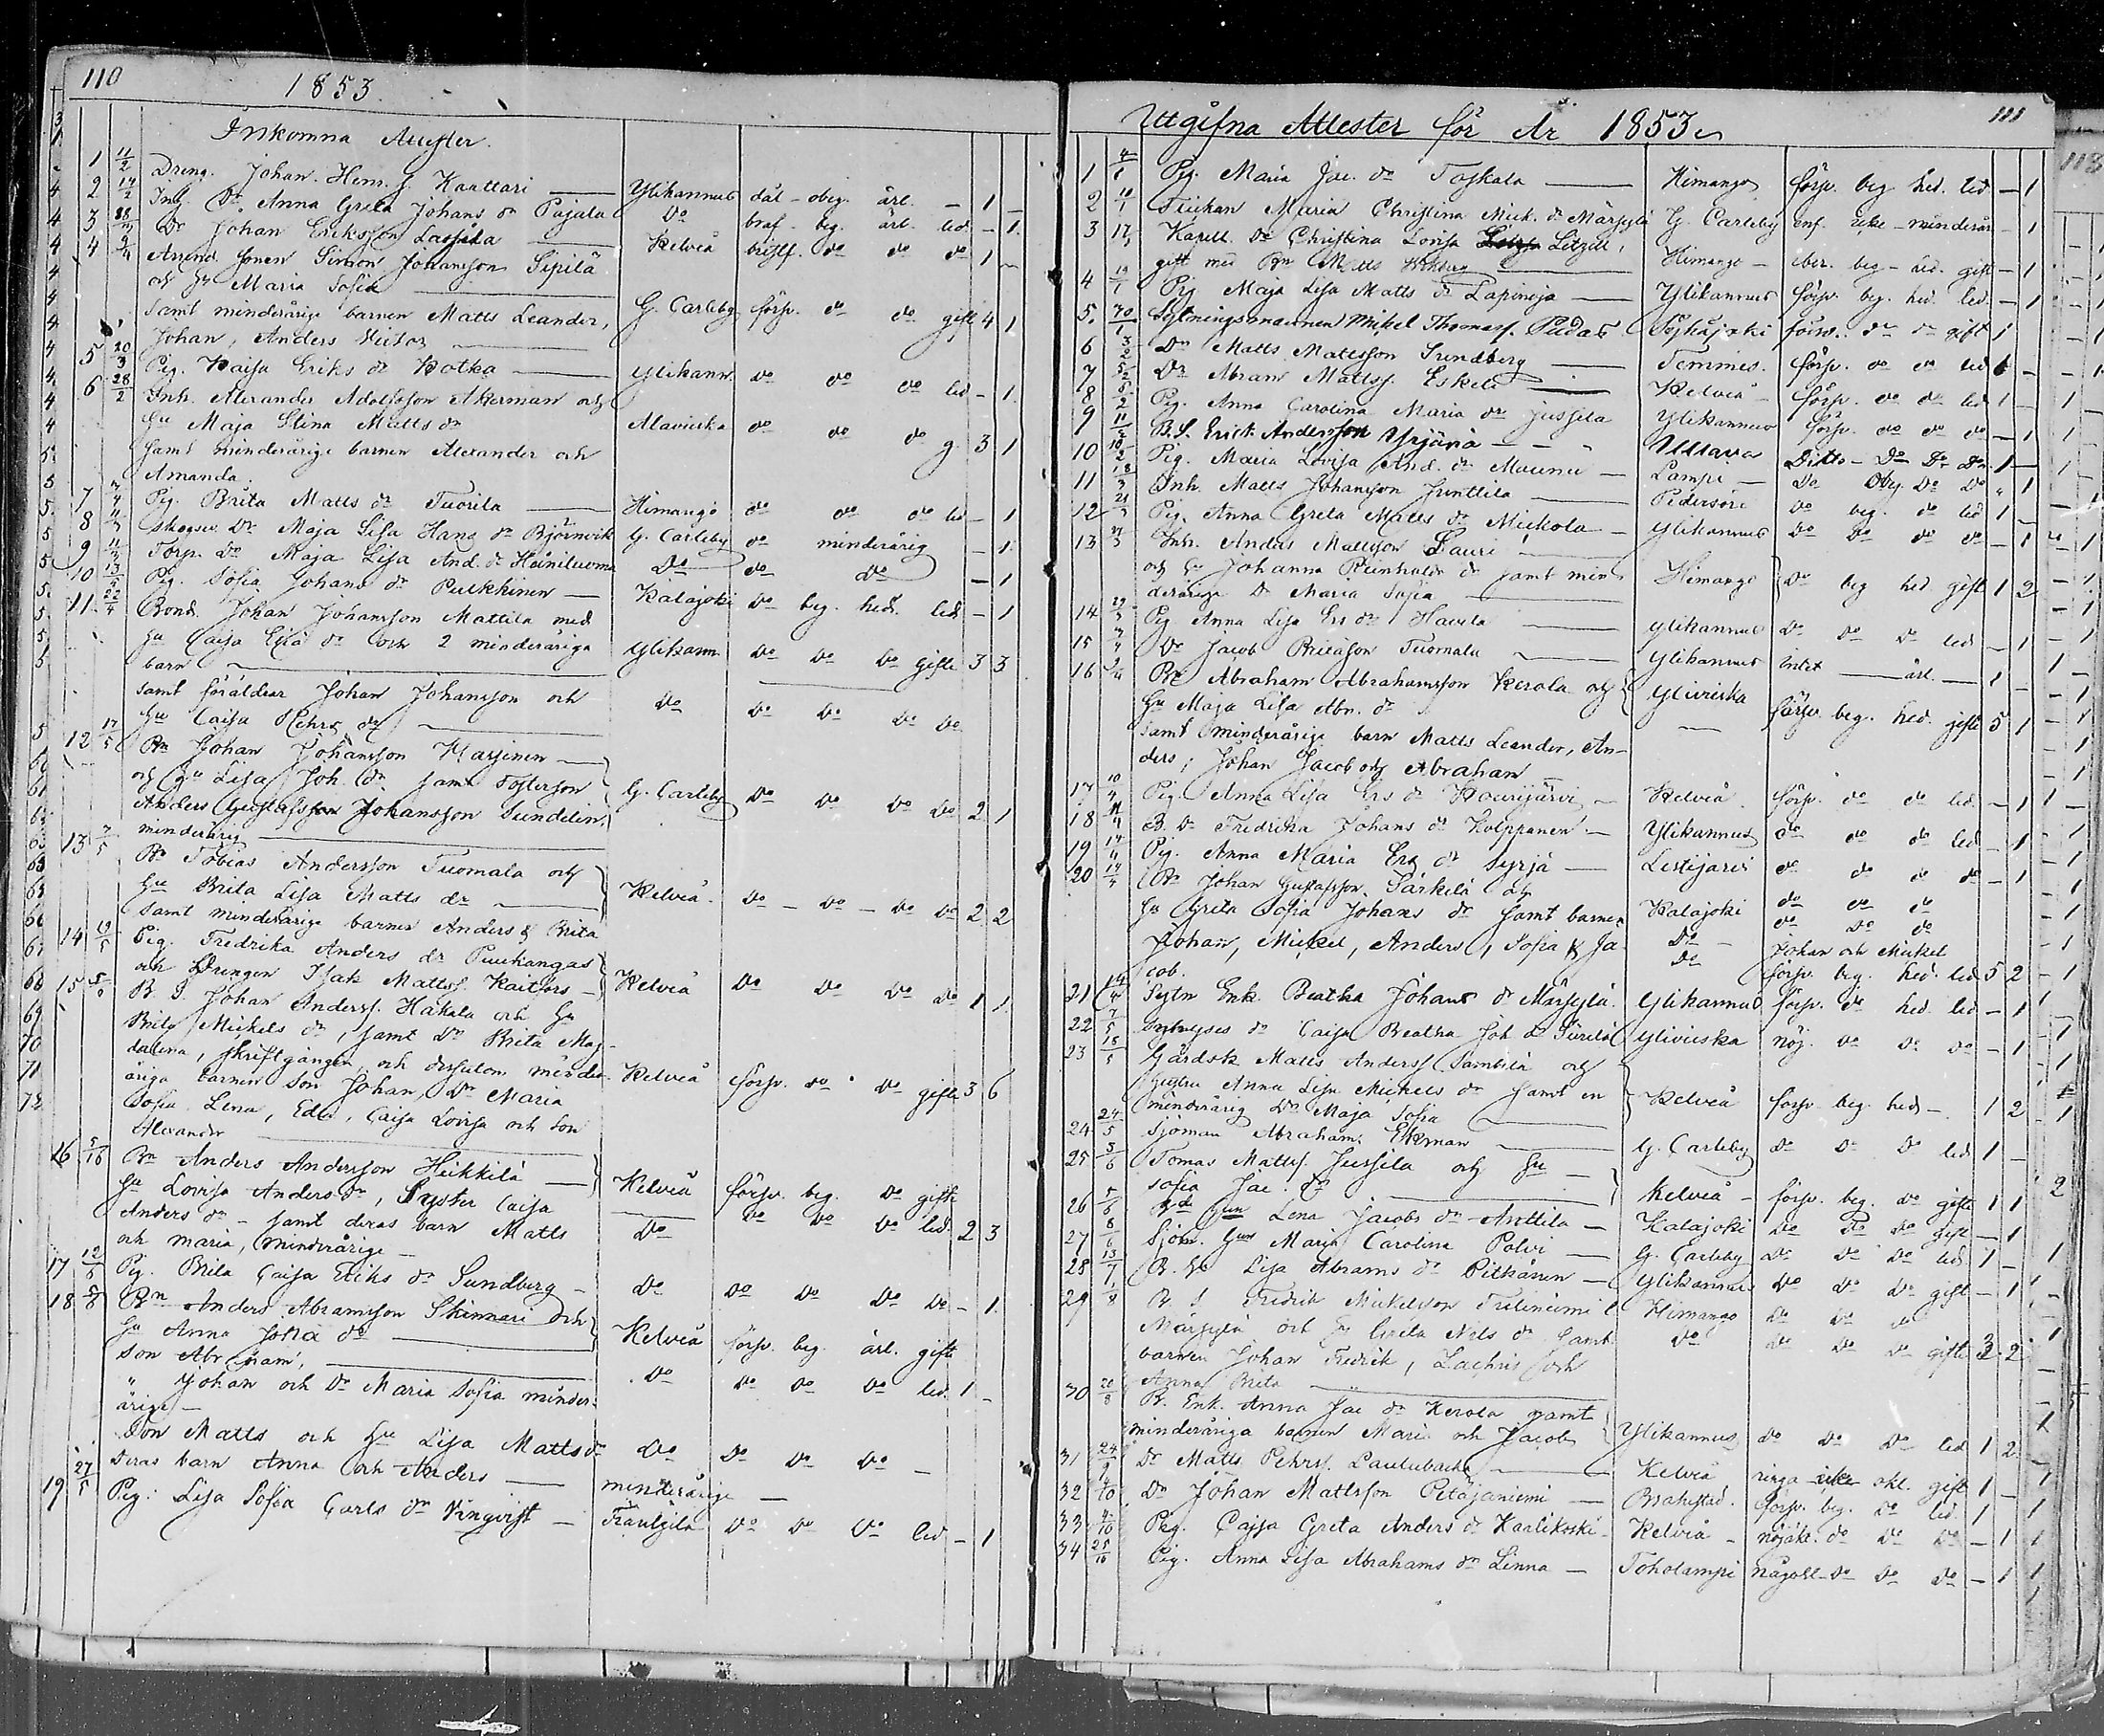 110
1853.
Inkomna Attester.
1 11/2 Dreng. Johan Henr. s. Kaattari — Ylikannus dål - obeg. ärl. - 1 -
2 14/2 Inh. Dr Anna Greta Johans dr Pajala Do braf. beg. ärl. led. - 1.
3 28/2 Dr Johan Eriksson Lassila — Kelviå
4 9/4 Arrend. sonen Simon Johansson Sipilä
och hu Maria Sofia
samt minderårige barnen Matts Leander, G. Carleby förſv. do do gift 4 1
Johan, Anders Victor —
5 20/3 Pig. Kaisa Eriks dr Kotka — Ylikann. do do do led - 1.
6 28/2 Inh. Alexander Adolfsson Åkerman och
hu Maja Stina Matts dr Alavieska do do do g. 3 1
samt minderårige barnen Alexander och
Amanda.
7 Pig. Brita Matts dr Tuorila — Himango do do do led - 1
8 Dr Maja Lisa Hans dr Björnvik G. Carleby do minderårig - 1.
9 11/3 Torp. Do Maja Lisa And. dr Heiniluoma Do do Do - 1
10 13/4 Pig. Sofia Johans dr Pulkkinen — Kalajoki Do beg. hed. led - 1
11. 22/4 Bond. Johan Johansson Mattila med
hu Caisa dr och 2 minderåriga Ylikann. Do Do Do gifte 3 3
barn —
samt föräldrar Johan Johansson och Do Do Do Do Do
hu Caisa Pehrs dr —
12 17/5 Bn Johan Johansson Marjinen —
och hu Lisa Joh. dr samt fosterson G. Carleby Do Do Do Do 2 1
Anders Gustafsson Johansson Sundelin,
minderårig —
13 7/5 Bn Tobias Andersson Tuomala och
hu Brita Lisa Matts dr — Kelviå. Do - Do - Do Do 2 2
samt minderårige barnen Anders & Brita
14 19/5 Pig. Fredrika Anders dr Puukangas
och Drengen Isak Mattss. Kaitfors — Kelviå Do Do Do Do 1 1.
15 B. S. Johan Anderss. Hakala och hu
Brita Mickels dr, samt Dr Brita Mag-
dalena, skriftgången, och dessutom minder-
åriga barnen Son Johan, Dr Maria Kelviå förſv. do do gifte 3 6
Sofia Lena, Edla, Caisa Lovisa och Son
Alexander
16 Bn Anders Andersson Heikkilä —
hu Lovisa Anders dr, Syster Caisa Kelviå förſv. beg. Do gifte
Anders dr - samt deras barn Matts Do Do Do Do led. 2 3
och Maria, minderårige —
17 12/6 Pig. Brita Caisa Eriks dr Sundberg - Do Do Do Do Do - 1.
18 Bn Anders Abramsson Skinnari och
hu Anna dr — Kelviå förſv. beg. ärl. gift
Son Abraham, — Do Do Do Do led. 1 -
" Johan och Dr Maria Sofia minder-
årige —
Son Matts och hu Lisa Matts dr Do Do Do Do —
deras barn Anna och Anders — minderårige —
19 27/5 Pig: Lisa Sofia Carls dr — Do Do Do led - 1
Utgifna Attester för År 1853.
111
1 4/1 Pig. Maria Jac. dr Toskala — Himango förſv. beg hed. led - 1
2 Flickan Maria Christina Mick. dr Märsylä G. Carleby - minderår - 1
3 17/1 Kapell. Dr Christina Lovisa Litzell,
gift med Bn Matts — Himango - beg - hed. gift - 1
4 19/1 Pig Maja Lisa Matts dr Lapinoja — Ylikannus förſv. beg. hed. led. - 1
5. Sytningsmannen Mikel Thomass. Pudas do do gift 1
6 3/2 Dr Matts Mattsson Sundberg — Temmes. förſv. do do led 1 -
7 5/2 Dr Abram Mattss. Eskelä — Kelviå förſv. do do led 1 -
8 8/2 Pig. Anna Carolina Maria dr Jussila Ylikannus förſv. do do do - 1
9 11/2 B. S. Erick Andersson Yrjänä — Ullava Ditto - Do Do Do 1 —
10 Pig. Maria Lovisa And. dr Maunu — Lampi - Do Obeg Do Do " 1
11 18/3 Inh. Matts Johansson Junttila — Pedersöre Do beg. do led 1
12 21/3 Pig. Anna Greta Matts dr Mickola — Ylikannus Do Do do do - 1
13 Inh. Anders Mattsson Lauri
och hu Johanna Reinholds dr samt min- Himango Do beg hed gift 1 2
derårige Dr Maria Sofia —
14 29/3 Pig Anna Lisa Ers dr Havela — Ylikannus Do Do Do led - 1
15 Do Jacob Britason Tuomala — Ylikannus intet — ärl. — 1 -
16 Bn Abraham Abrahamsson Kerola och Ylivieska förſv. beg. hed. gifte 5 1
hu Maja Lisa Abr. dr
samt minderårige barn Matts Leander, An-
ders, Johan Jacob och Abraham
17 10/4 Pig. Anna Lisa Ers dr — Kelviå. förſv. do do led. - 1
18 11/4 B. Dr Fredrika Johans dr Kolppanen — Ylikannus do do do led - 1
19 14/4 Pig. Anna Maria Ers dr Syrjä — Lestijärvi do do do do - 1
20 14/4 Bn Johan Gustafsson Särkelä och
hu Greta Sofia Johans dr samt barnen Kalajoki do do do
Johan, Mickel, Anders, Sofia & Ja- Do - Johan och Mickel
cob. do förſv. beg. hed. led 5 2
21 14/4 Sytn Enk. Beatha Johans dr Märsylä. Ylikannus förſv. do hed. led - 1
22 7/5 do Caisa Beatha Joh dr Ylivieska nöj. Do Do Do - 1
23 18/5 Gårdsk Matts Anderss. och
hustru Anna Lisa Mickels dr samt en Kelviå förſv beg hed - 1 2
minderårig Dr Maja Sofia —
24 24/5 Sjöman Abraham Ekman — G. Carleby Do Do Do led 1 -
25 5/6 Tomas Mattss. Jussila och hu —
Sofia Jac. dr — Kelviå - förſv. beg. do gifte 1 1
26 5/6 Bde hun Lena Jacobs dr Anttila — Kalajoki do do do gift - 1
27 8/6 Sjöm. hun Maria Carolina Polvi — G. Carleby Do Do Do led 1 -
28 13/7 B. hu Lisa Abrams dr Pitkänen — Ylikannus Do Do Do gift - 1
29 B. S Fredrik Mickelsson Himango Do Do Do
Märsylä och hu Greta Nils dr samt Do Do Do Do gifte 3 2
barnen Johan Fredrik, Zachris och
Anna Brita —
30 20/8 B. Enk. Anna Jac dr Kerola samt
minderåriga barnen Maria och Jacob Ylikannus do do Do led 1 2
31 24/9 Dr Matts Pehrss. — Kelviå ringa gift 1 —
32 4/10 Dr Johan Mattsson Petäjäniemi — Brahestad. förſv. beg. do led. 1
33 4/10 Pig. Cajsa Greta Anders dr Karlikoski - Kelviå - nöjakt. do Do Do - 1
34 25/10 Pig. Anna Lisa Abrahams dr Linna — Toholampi någorl - Do Do Do - 1
113